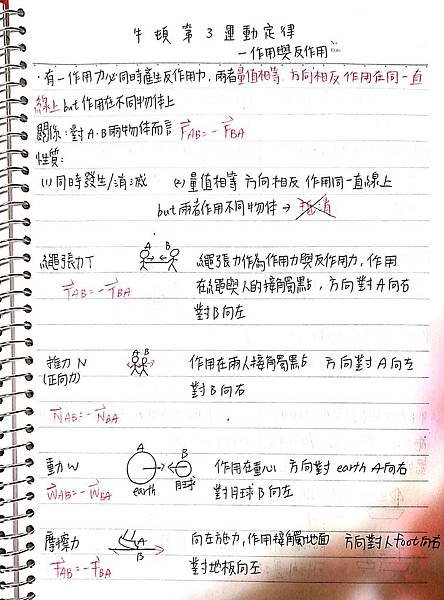 牛頓第3運動定律
No.
Date
－作用與反作用
・有一作用力必同時產生反作用力，兩者量值相等 方向相反 作用在同一直
線上 but 作用在不同物体上
關係：對A、B兩物体而言 F_AB = -F_BA
性質：
(1) 同時發生/消滅 (2) 量值相等 方向相反 作用同一直線上
but 兩者作用不同物体 → 抵消
繩張力T A B 繩張力作為作用力與反作用力，作用
T_AB = -T_BA 在繩與人的接觸點，方向對A向右
對B向左
推力 N A B 作用在兩人接觸點 方向對A向左
(正向力) 對B向右
N_AB = -N_BA
重力W A B 作用在重心 方向對 earth A向右
W_AB = -W_BA earth 月球 對月球B向左
摩擦力 A B 向左施力，作用接觸地面 方向對人foot向右
F_AB = -f_BA 對地板向左